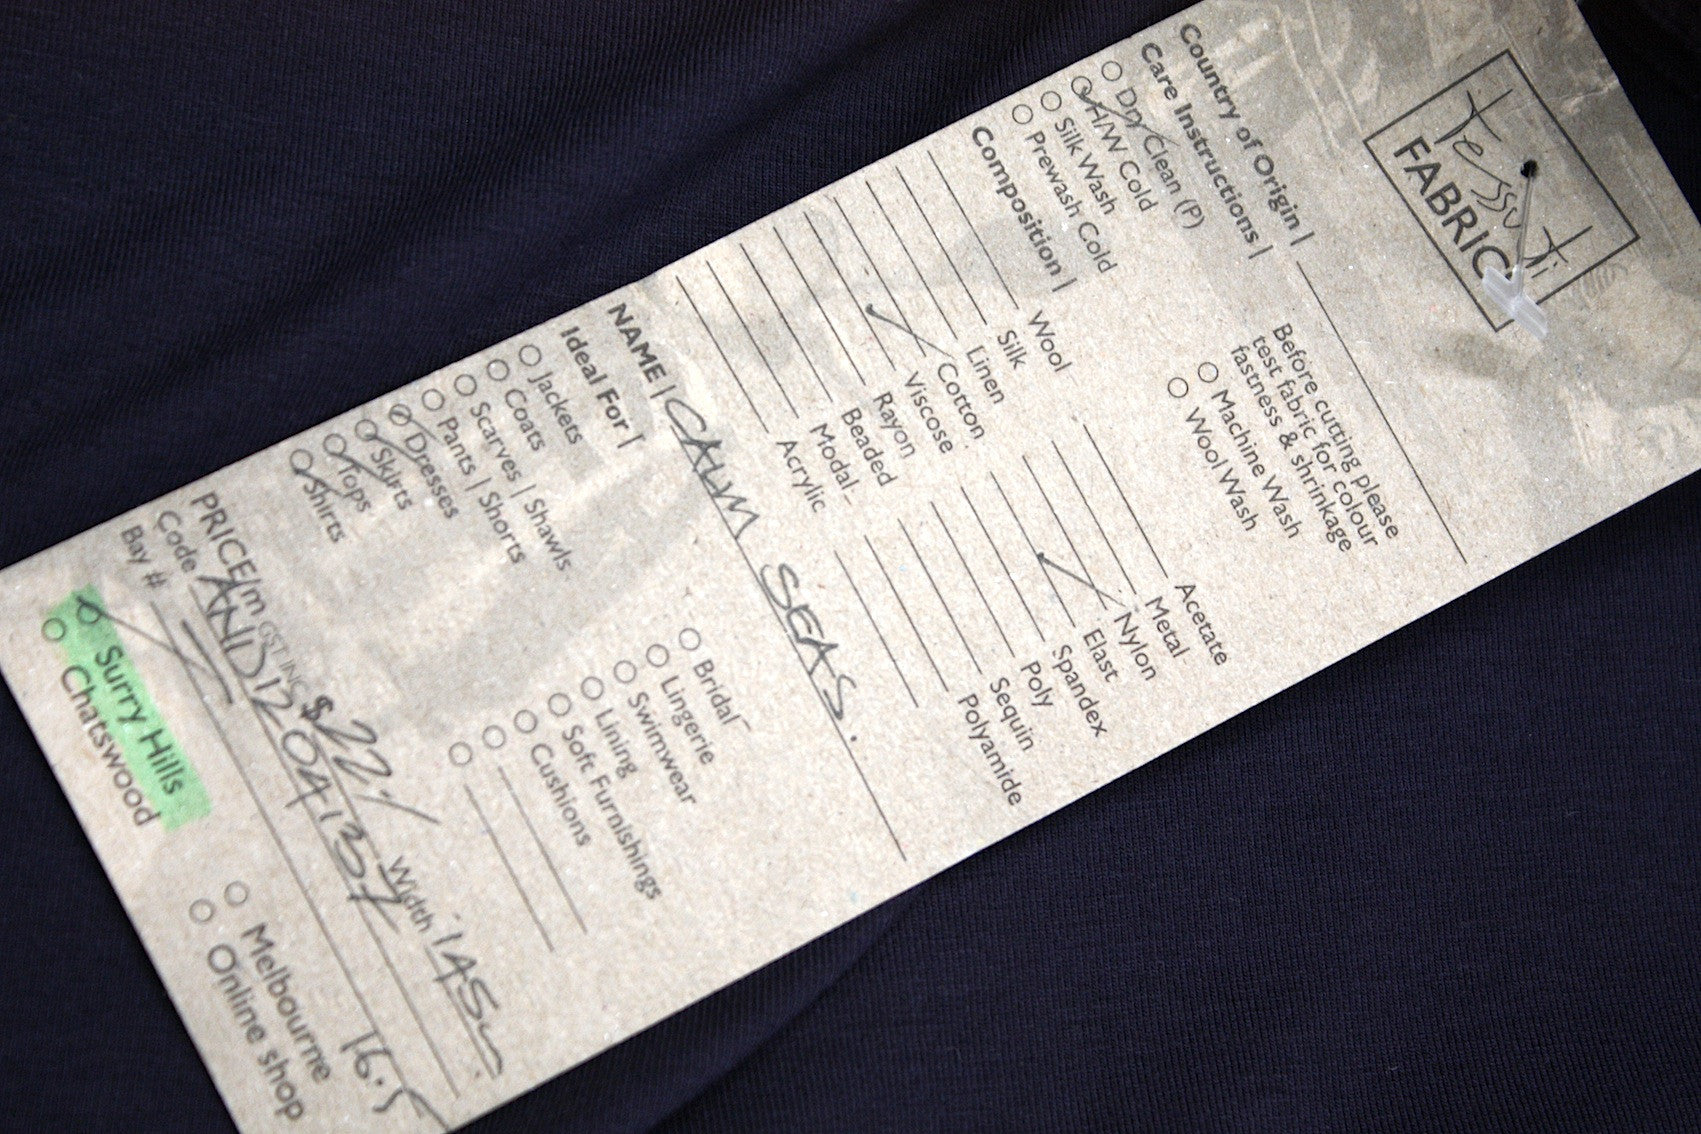 tessuti
FABRICS
Country of Origin |
Care Instructions |
Dry Clean (P)
H/W Cold
Silk Wash
Prewash Cold
Before cutting please
test fabric for colour
fastness & shrinkage
Machine Wash
Wool Wash
Composition |
Wool
Silk
Linen
Cotton
Viscose
Rayon
Beaded
Modal
Acrylic
Acetate
Metal
Nylon
Elast
Spandex
Poly
Sequin
Polyamide
NAME | CALM SEAS.
Ideal For |
Jackets
Coats
Scarves | Shawls
Pants | Shorts
Dresses
Skirts
Tops
Shirts
Bridal
Lingerie
Swimwear
Lining
Soft Furnishings
Cushions
PRICE/m GST INC $22./ Width 145
Code AND1204137
Bay # 16.5
Surry Hills
Chatswood
Melbourne
Online shop